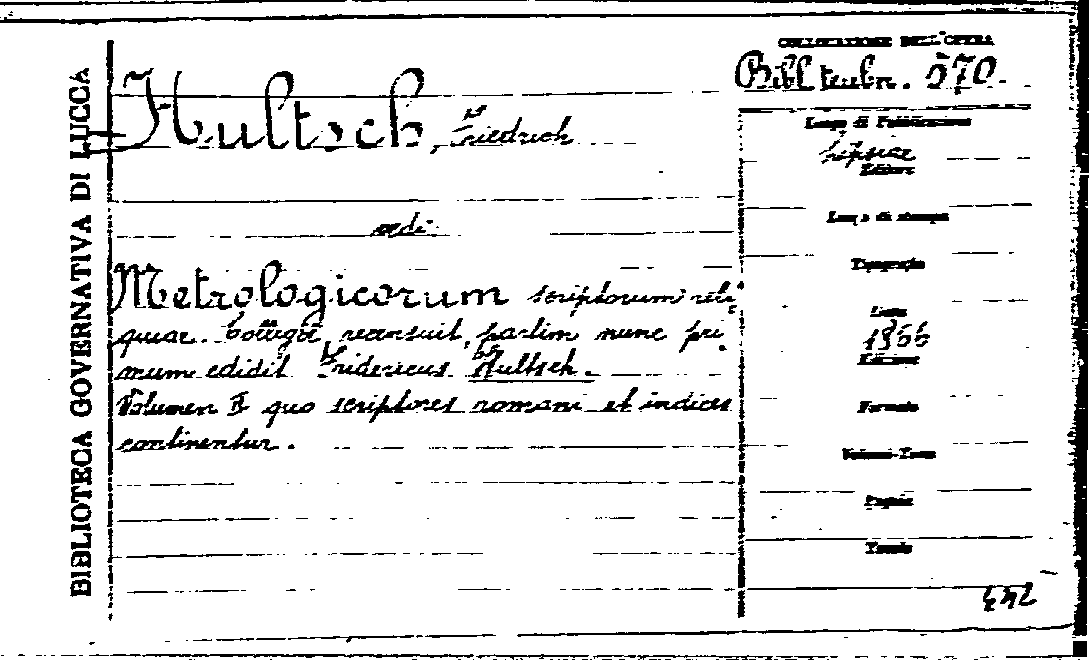 BIBLIOTECA GOVERNATIVA DI LUCCA
COLLOCAZIONE DELL'OPERA
Bibl. teubn. 570.
Hultsch, Friedrich
vedi:
Metrologicorum scriptorum reli-
quiae. Collegit, recensuit, partim nunc pri-
mum edidit Fridericus Hultsch.
Volumen II quo scriptores romani et indices
continentur.
Luogo di Pubblicazione
Lipsiae
Editore
Luogo di stampa
Tipografia
Data
1866
Edizione
Formato
Volumi-Tomo
Pagine
Tavole